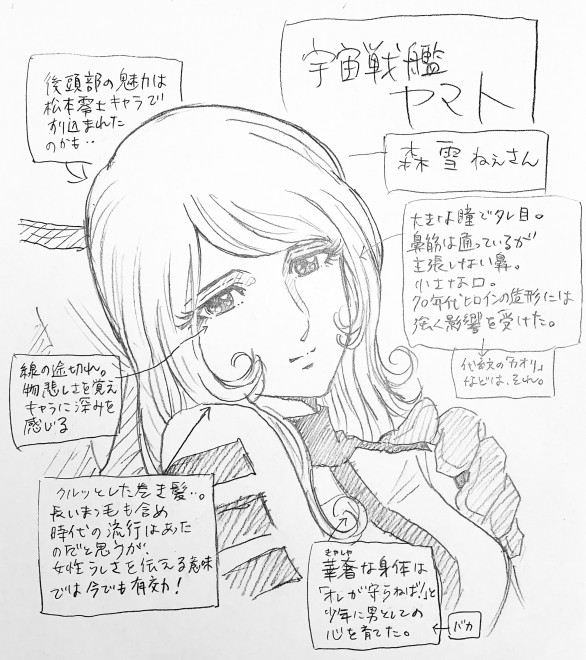 宇宙戦艦
ヤマト
森 雪 ねぇさん
後頭部の魅力は
松本零士キャラで
刷り込まれた
のかも‥
大きな瞳でタレ目。
鼻筋は通っているが
主張しない鼻。
小さな口。
70年代ヒロインの造形には
強く影響を受けた。
代紋の「カオリ」
などは、それ。
線の途切れ。
物悲しさを覚え
キャラに深みを
感じる
クルッとした巻き髪‥。
長いまつ毛も含め
時代の流行はあった
のだと思うが、
女性らしさを伝える意味
では今でも有効!
きゃしゃ
華奢な身体は
「オレが守らねば!」と
少年に男としての
心を育てた。
バカ